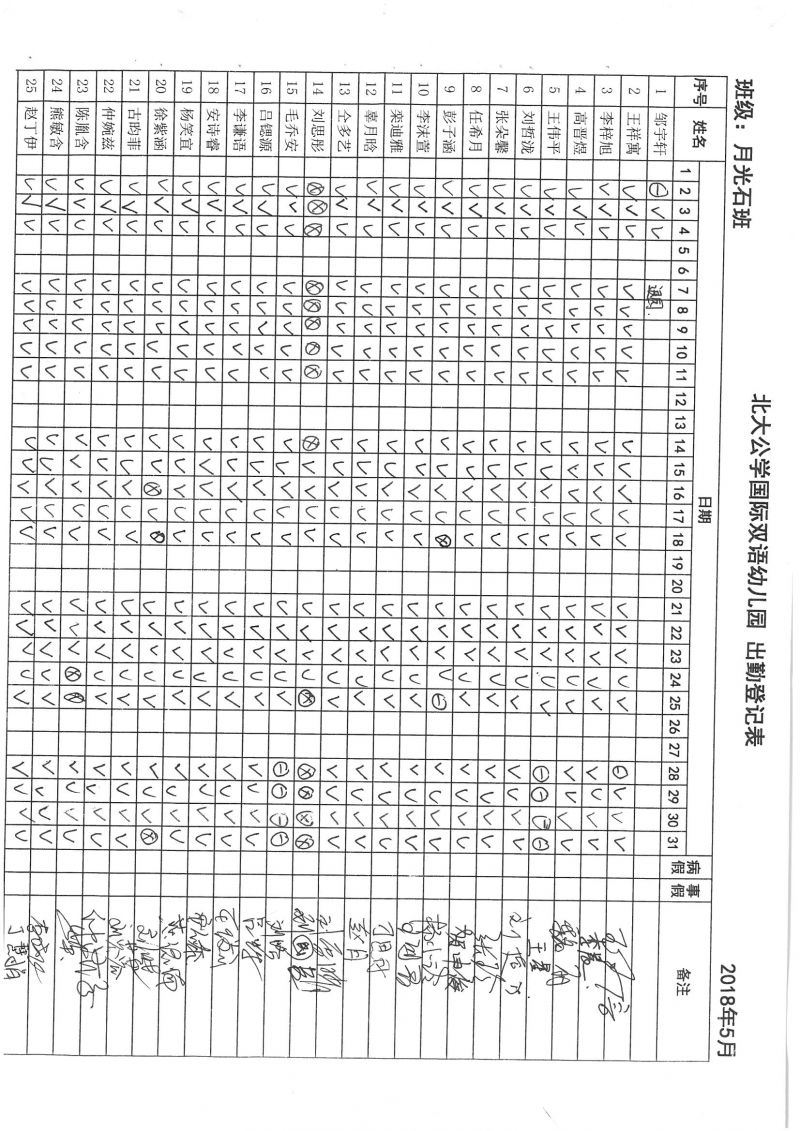 北大公学国际双语幼儿园 出勤登记表
班级：月光石班
2018年5月
序号 姓名 日期 病假 事假 备注
1 2 3 4 5 6 7 8 9 10 11 12 13 14 15 16 17 18 19 20 21 22 23 24 25 26 27 28 29 30 31
1 邹宇轩 ⊖ ✓ ✓ 退园
2 王祥寓 ✓ ✓ ✓ ✓ ✓ ✓ ✓ ✓ ✓ ✓ ✓ ✓ ✓ ✓ ✓ ✓ ✓ ✓ ⊖ ✓ ✓ ✓
3 李梓旭 ✓ ✓ ✓ ✓ ✓ ✓ ✓ ✓ ✓ ✓ ✓ ✓ ✓ ✓ ✓ ✓ ✓ ✓ ✓ ✓ ✓ ✓
4 高晋煜 ✓ ✓ ✓ ✓ ✓ ✓ ✓ ✓ ✓ ✓ ✓ ✓ ✓ ✓ ✓ ✓ ✓ ✓ ✓ ✓ ✓ ✓
5 王伟平 ✓ ✓ ✓ ✓ ✓ ✓ ✓ ✓ ✓ ✓ ✓ ✓ ✓ ✓ ✓ ✓ ✓ ✓ ⊖ ⊖ ⊖ ⊖ 王星
6 刘哲泷 ✓ ✓ ✓ ✓ ✓ ✓ ✓ ✓ ✓ ✓ ✓ ✓ ✓ ✓ ✓ ✓ ✓ ✓ ✓ ✓ ✓ ✓
7 张朵馨 ✓ ✓ ✓ ✓ ✓ ✓ ✓ ✓ ✓ ✓ ✓ ✓ ✓ ✓ ✓ ✓ ✓ ✓ ✓ ✓ ✓ ✓
8 任希月 ✓ ✓ ✓ ✓ ✓ ✓ ✓ ✓ ✓ ✓ ✓ ✓ ✓ ✓ ✓ ✓ ✓ ✓ ✓ ✓ ✓ ✓
9 彭子涵 ✓ ✓ ✓ ✓ ✓ ✓ ✓ ✓ ✓ ✓ ✓ ✓ ⊗ ✓ ✓ ✓ ✓ ⊖ ✓ ✓ ✓ ✓
10 李沫萱 ✓ ✓ ✓ ✓ ✓ ✓ ✓ ✓ ✓ ✓ ✓ ✓ ✓ ✓ ✓ ✓ ✓ ✓ ✓ ✓ ✓ ✓
11 栾迪雅 ✓ ✓ ✓ ✓ ✓ ✓ ✓ ✓ ✓ ✓ ✓ ✓ ✓ ✓ ✓ ✓ ✓ ✓ ✓ ✓ ✓ ✓
12 辜月晗 ✓ ✓ ✓ ✓ ✓ ✓ ✓ ✓ ✓ ✓ ✓ ✓ ✓ ✓ ✓ ✓ ✓ ✓ ✓ ✓ ✓ ✓
13 仝多艺 ✓ ✓ ✓ ✓ ✓ ✓ ✓ ✓ ✓ ✓ ✓ ✓ ✓ ✓ ✓ ✓ ✓ ✓ ✓ ✓ ✓ ✓
14 刘思彤 ⊗ ⊗ ⊗ ⊗ ⊗ ⊗ ⊗ ⊗ ⊗ ✓ ✓ ✓ ✓ ✓ ✓ ✓ ✓ ⊗ ⊗ ⊗ ⊗ ⊗
15 毛乔安 ✓ ✓ ✓ ✓ ✓ ✓ ✓ ✓ ✓ ✓ ✓ ✓ ✓ ✓ ✓ ✓ ✓ ✓ ⊖ ⊖ ⊖ ⊖
16 吕锶源 ✓ ✓ ✓ ✓ ✓ ✓ ✓ ✓ ✓ ✓ ✓ ✓ ✓ ✓ ✓ ✓ ✓ ✓ ✓ ✓ ✓ ✓
17 李谦语 ✓ ✓ ✓ ✓ ✓ ✓ ✓ ✓ ✓ ✓ ✓ ✓ ✓ ✓ ✓ ✓ ✓ ✓ ✓ ✓ ✓ ✓
18 安诗睿 ✓ ✓ ✓ ✓ ✓ ✓ ✓ ✓ ✓ ✓ ✓ ✓ ✓ ✓ ✓ ✓ ✓ ✓ ✓ ✓ ✓ ✓
19 杨笑宜 ✓ ✓ ✓ ✓ ✓ ✓ ✓ ✓ ✓ ✓ ✓ ✓ ✓ ✓ ✓ ✓ ✓ ✓ ✓ ✓ ✓ ✓
20 徐紫涵 ✓ ✓ ✓ ✓ ✓ ✓ ✓ ✓ ✓ ✓ ⊗ ✓ ⊗ ✓ ✓ ✓ ✓ ✓ ✓ ✓ ✓ ⊗
21 古昀菲 ✓ ✓ ✓ ✓ ✓ ✓ ✓ ✓ ✓ ✓ ✓ ✓ ✓ ✓ ✓ ✓ ✓ ✓ ✓ ✓ ✓ ✓
22 仲婉兹 ✓ ✓ ✓ ✓ ✓ ✓ ✓ ✓ ✓ ✓ ✓ ✓ ✓ ✓ ✓ ✓ ✓ ✓ ✓ ✓ ✓ ✓
23 陈胤含 ✓ ✓ ✓ ✓ ✓ ✓ ✓ ✓ ✓ ✓ ✓ ✓ ✓ ✓ ✓ ✓ ⊗ ⊗ ✓ ✓ ✓ ✓
24 熊敏含 ✓ ✓ ✓ ✓ ✓ ✓ ✓ ✓ ✓ ✓ ✓ ✓ ✓ ✓ ✓ ✓ ✓ ✓ ✓ ✓ ✓ ✓
25 赵丁伊 ✓ ✓ ✓ ✓ ✓ ✓ ✓ ✓ ✓ ✓ ✓ ✓ ✓ ✓ ✓ ✓ ✓ ✓ ✓ ✓ ✓ ✓